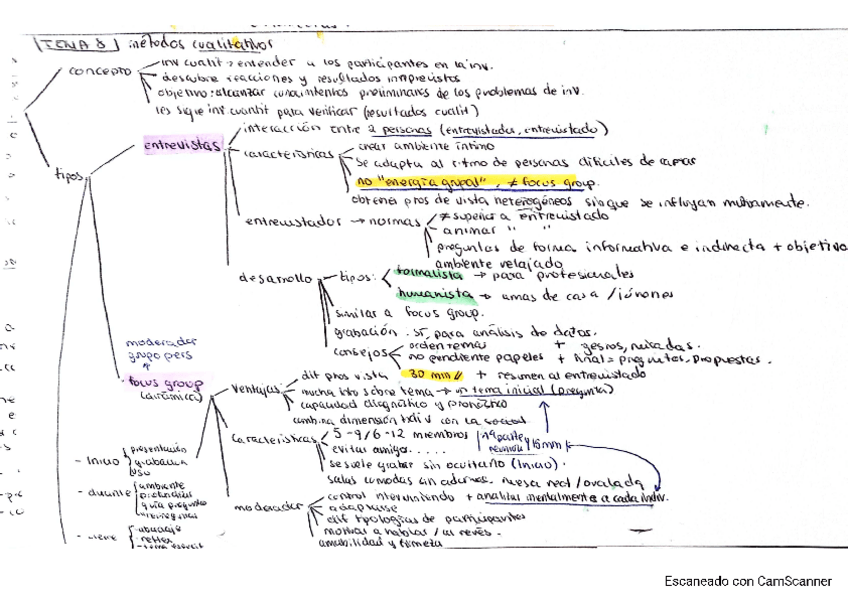 TEMA 8 métodos cualitativos
concepto
inv cualit → entender a los participantes en la inv.
descubre reacciones y resultados imprevistos
objetivo: alcanzar conocimientos preliminares de los problemas de inv.
les sigue inv. cuantit para verificar (resultados cualit)
tipos
entrevistas
interacción entre 2 personas (entrevistador, entrevistado)
características
crear ambiente íntimo
se adapta al ritmo de personas difíciles de captar
no "energía grupal", ≠ focus group.
obtener ptos de vista heterogéneos sin que se influyan mutuamente.
entrevistador → normas
≠ superior a entrevistado
animar " "
preguntas de forma informativa e indirecta + objetivo
ambiente relajado
desarrollo
tipos:
formalista → para profesionales
humanista → amas de casa / jóvenes
similar a focus group.
grabación. sí, para análisis de datos.
consejos
orden temas + gestos, miradas.
no pendiente papeles + final = preguntas, propuestas.
30 min + resumen al entrevistado
moderador
grupo pers
focus group
(dinámica)
ventajas
dif ptos vista
mucha info sobre tema → un tema inicial (pregunta)
capacidad diagnóstico y pronóstico
combina dimensión indiv con la social
características
5-9/6-12 miembros
reunión
evitar amigos.....
se suele grabar sin ocultarlo (inicio).
salas comodas sin adornos. mesa real / ovalada
moderador
control interviniendo + analizar mentalmente a cada indiv.
adaptarse
dif tipologías de participantes
motivar a hablar / al revés.
amabilidad y firmeza
- Inicio
presentación
grabadora
- durante
ambiente
guía preguntas
Escaneado con CamScanner